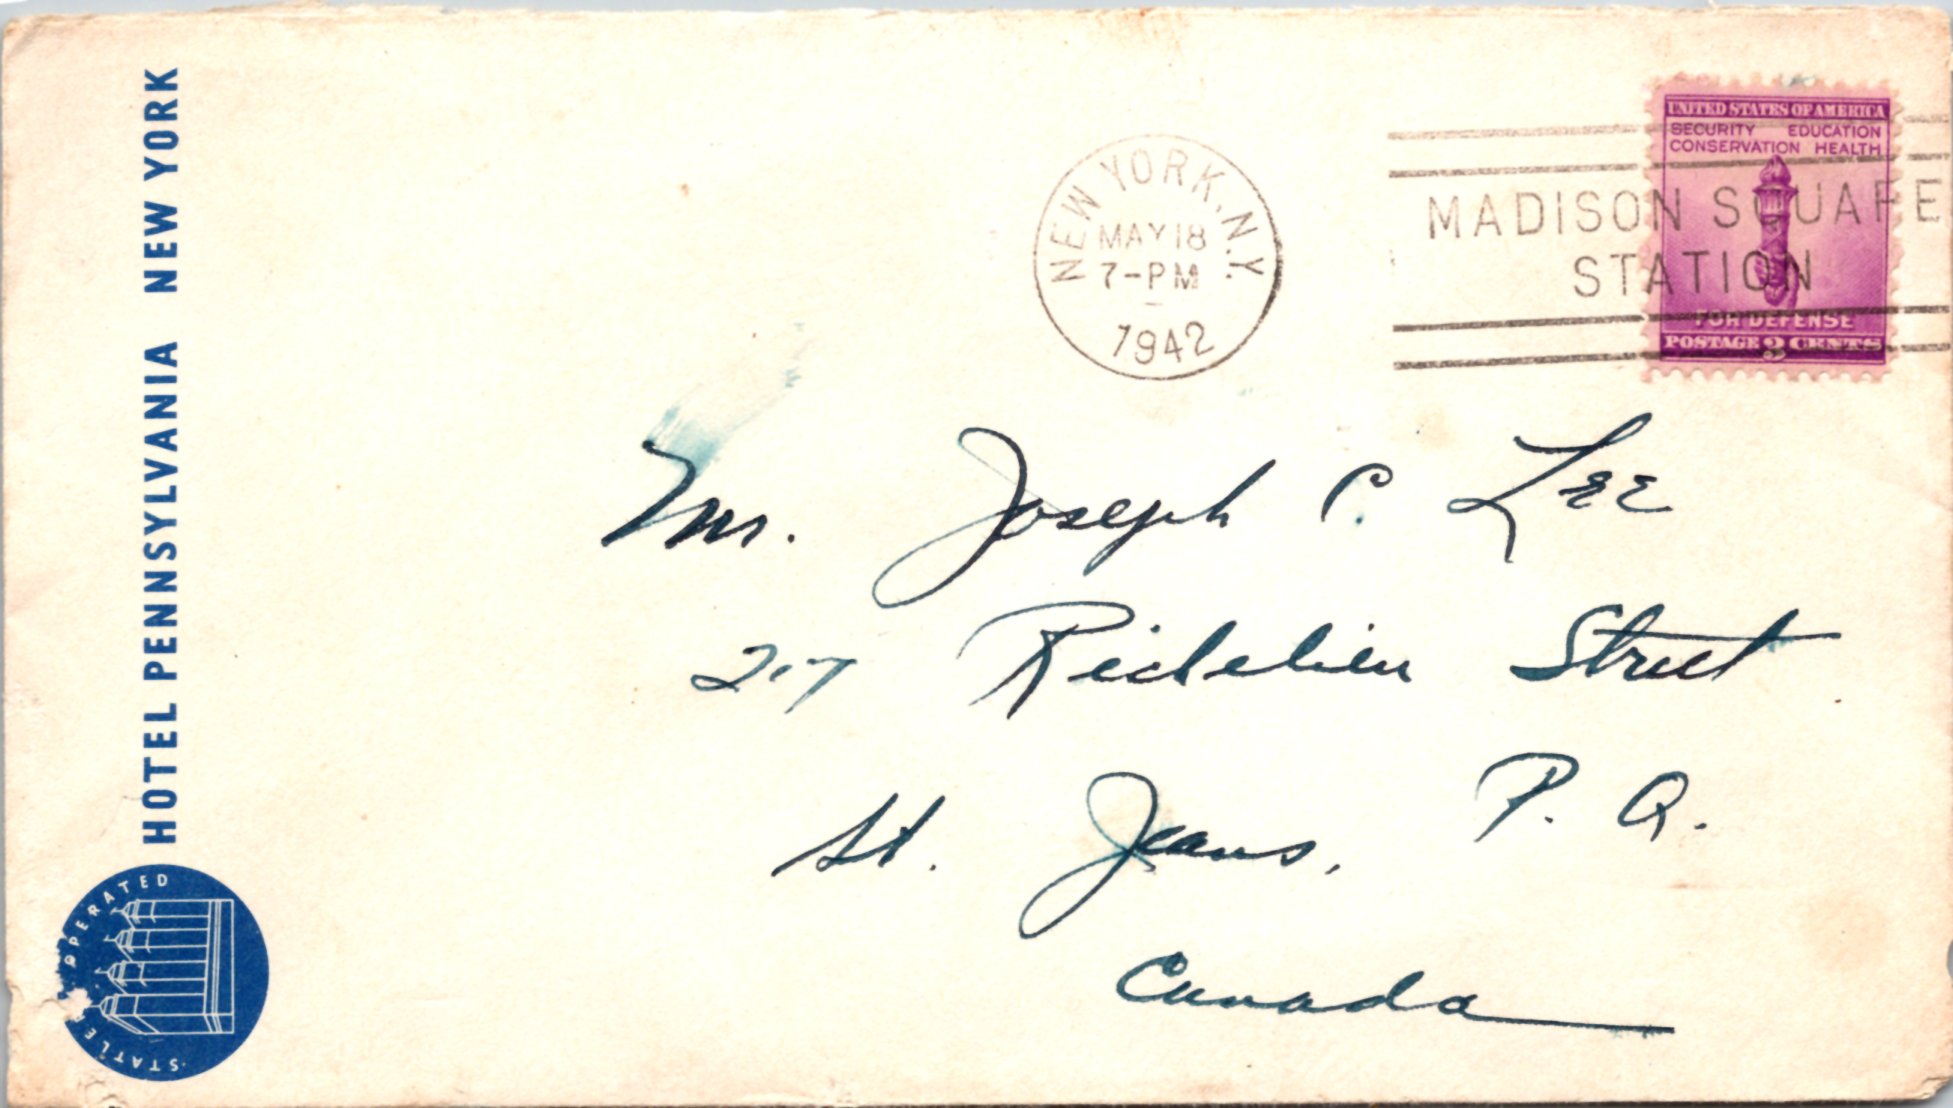 HOTEL PENNSYLVANIA NEW YORK
STATLER OPERATED
NEW YORK, N.Y.
MAY 18
7-PM
1942
MADISON SQUARE
STATION
UNITED STATES OF AMERICA
SECURITY EDUCATION
CONSERVATION HEALTH
FOR DEFENSE
POSTAGE 3 CENTS
Mr. Joseph C. Lee
217 Richelieu Street
St. Jeans, P. Q.
Canada